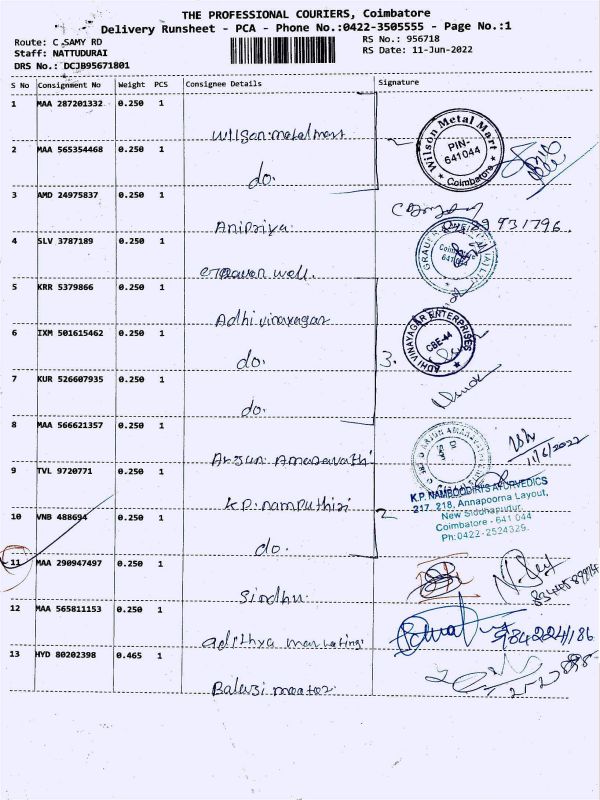 THE PROFESSIONAL COURIERS, Coimbatore
Delivery Runsheet - PCA - Phone No.:0422-3505555 - Page No.:1
Route: C SAMY RD
RS No.: 956718
Staff: NATTUDURAI
RS Date: 11-Jun-2022
DRS No.: DCJB95671801
S No Consignment No Weight PCS Consignee Details Signature
1 MAA 287201332 0.250 1
Wilson metal mart
Wilson Metal Mart PIN- 641044 Coimbatore
2 MAA 565354468 0.250 1
do.
3 AMD 24975837 0.250 1
Anipriya
931796.
4 SLV 3787189 0.250 1
well.
5 KRR 5379866 0.250 1
Adhi vinayagar
ADHI VINAYAGAR ENTERPRISES CBE-44
6 IXM 501615462 0.250 1
do.
3.
7 KUR 526607935 0.250 1
do.
8 MAA 566621357 0.250 1
Arjun Amaravathi
11/6/2022
9 TVL 9720771 0.250 1
K.P. namputhiri
K.P. NAMBOODIRI'S AYURVEDICS
217, 218, Annapoorna Layout,
New Siddhapudur,
Coimbatore - 641 044
Ph:0422-2524325.
10 VNB 488694 0.250 1
do.
2
11 MAA 290947497 0.250 1
Sindhu
12 MAA 565811153 0.250 1
adithya marketing
13 HYD 80202398 0.465 1
Balaji